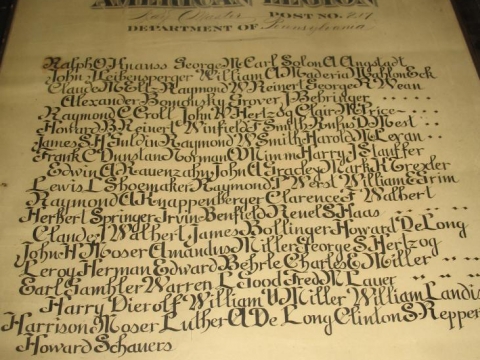 AMERICAN LEGION
POST NO.
DEPARTMENT OF Pennsylvania
Ralph O Knauss George McCarl Solon A Angstadt
John Leibensperger William A Maderia Mahlon Eck
Claude M Eltz Raymond W Reinert George R Wean
Alexander Bomdusky Grover J Behringer
Raymond C Croll John H Hertzog Clair M Price
Howard B Reinert Winfield F Smith Rufus D Mest
James S H Guldin Raymond W Smith Harold McLevan
Frank C Dunstan Norman O Nimme Harry J Stauffer
Edwin A Rauenzahn John A Gradey Mark K Trexler
Lewis L Shoemaker Raymond J Werst William E Trim
Raymond A Knappenberger Clarence F Walbert
Herbert Springer Irvin Benfield Reuel S Haas
Claude J Walbert James Bollinger Howard De Long
John H Moser Amandus Miller George S Hertzog
Leroy Herman Edward Behrle Charles E Miller
Earl Gambler Warren L Good Fred M Lauer
Harry Dierolf William U Miller William Landis
Harrison Moser Luther A De Long Clinton S Reppert
Howard Schauers